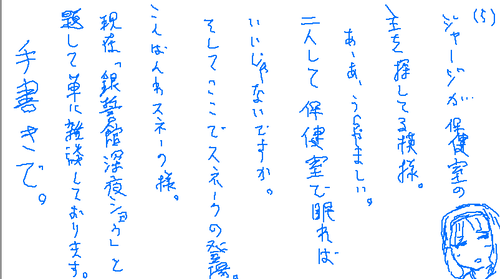 (5)
ジャージが保健室の
主を探してる模様。
あ、あ、うらやましい。
二人して保健室で眠れば
いいじゃないですか。
そしてここでスネークの登場。
こんばんわスネーク様。
現在「銀誓館深夜ショウ」と
題して単に雑談しております。
手書きで。